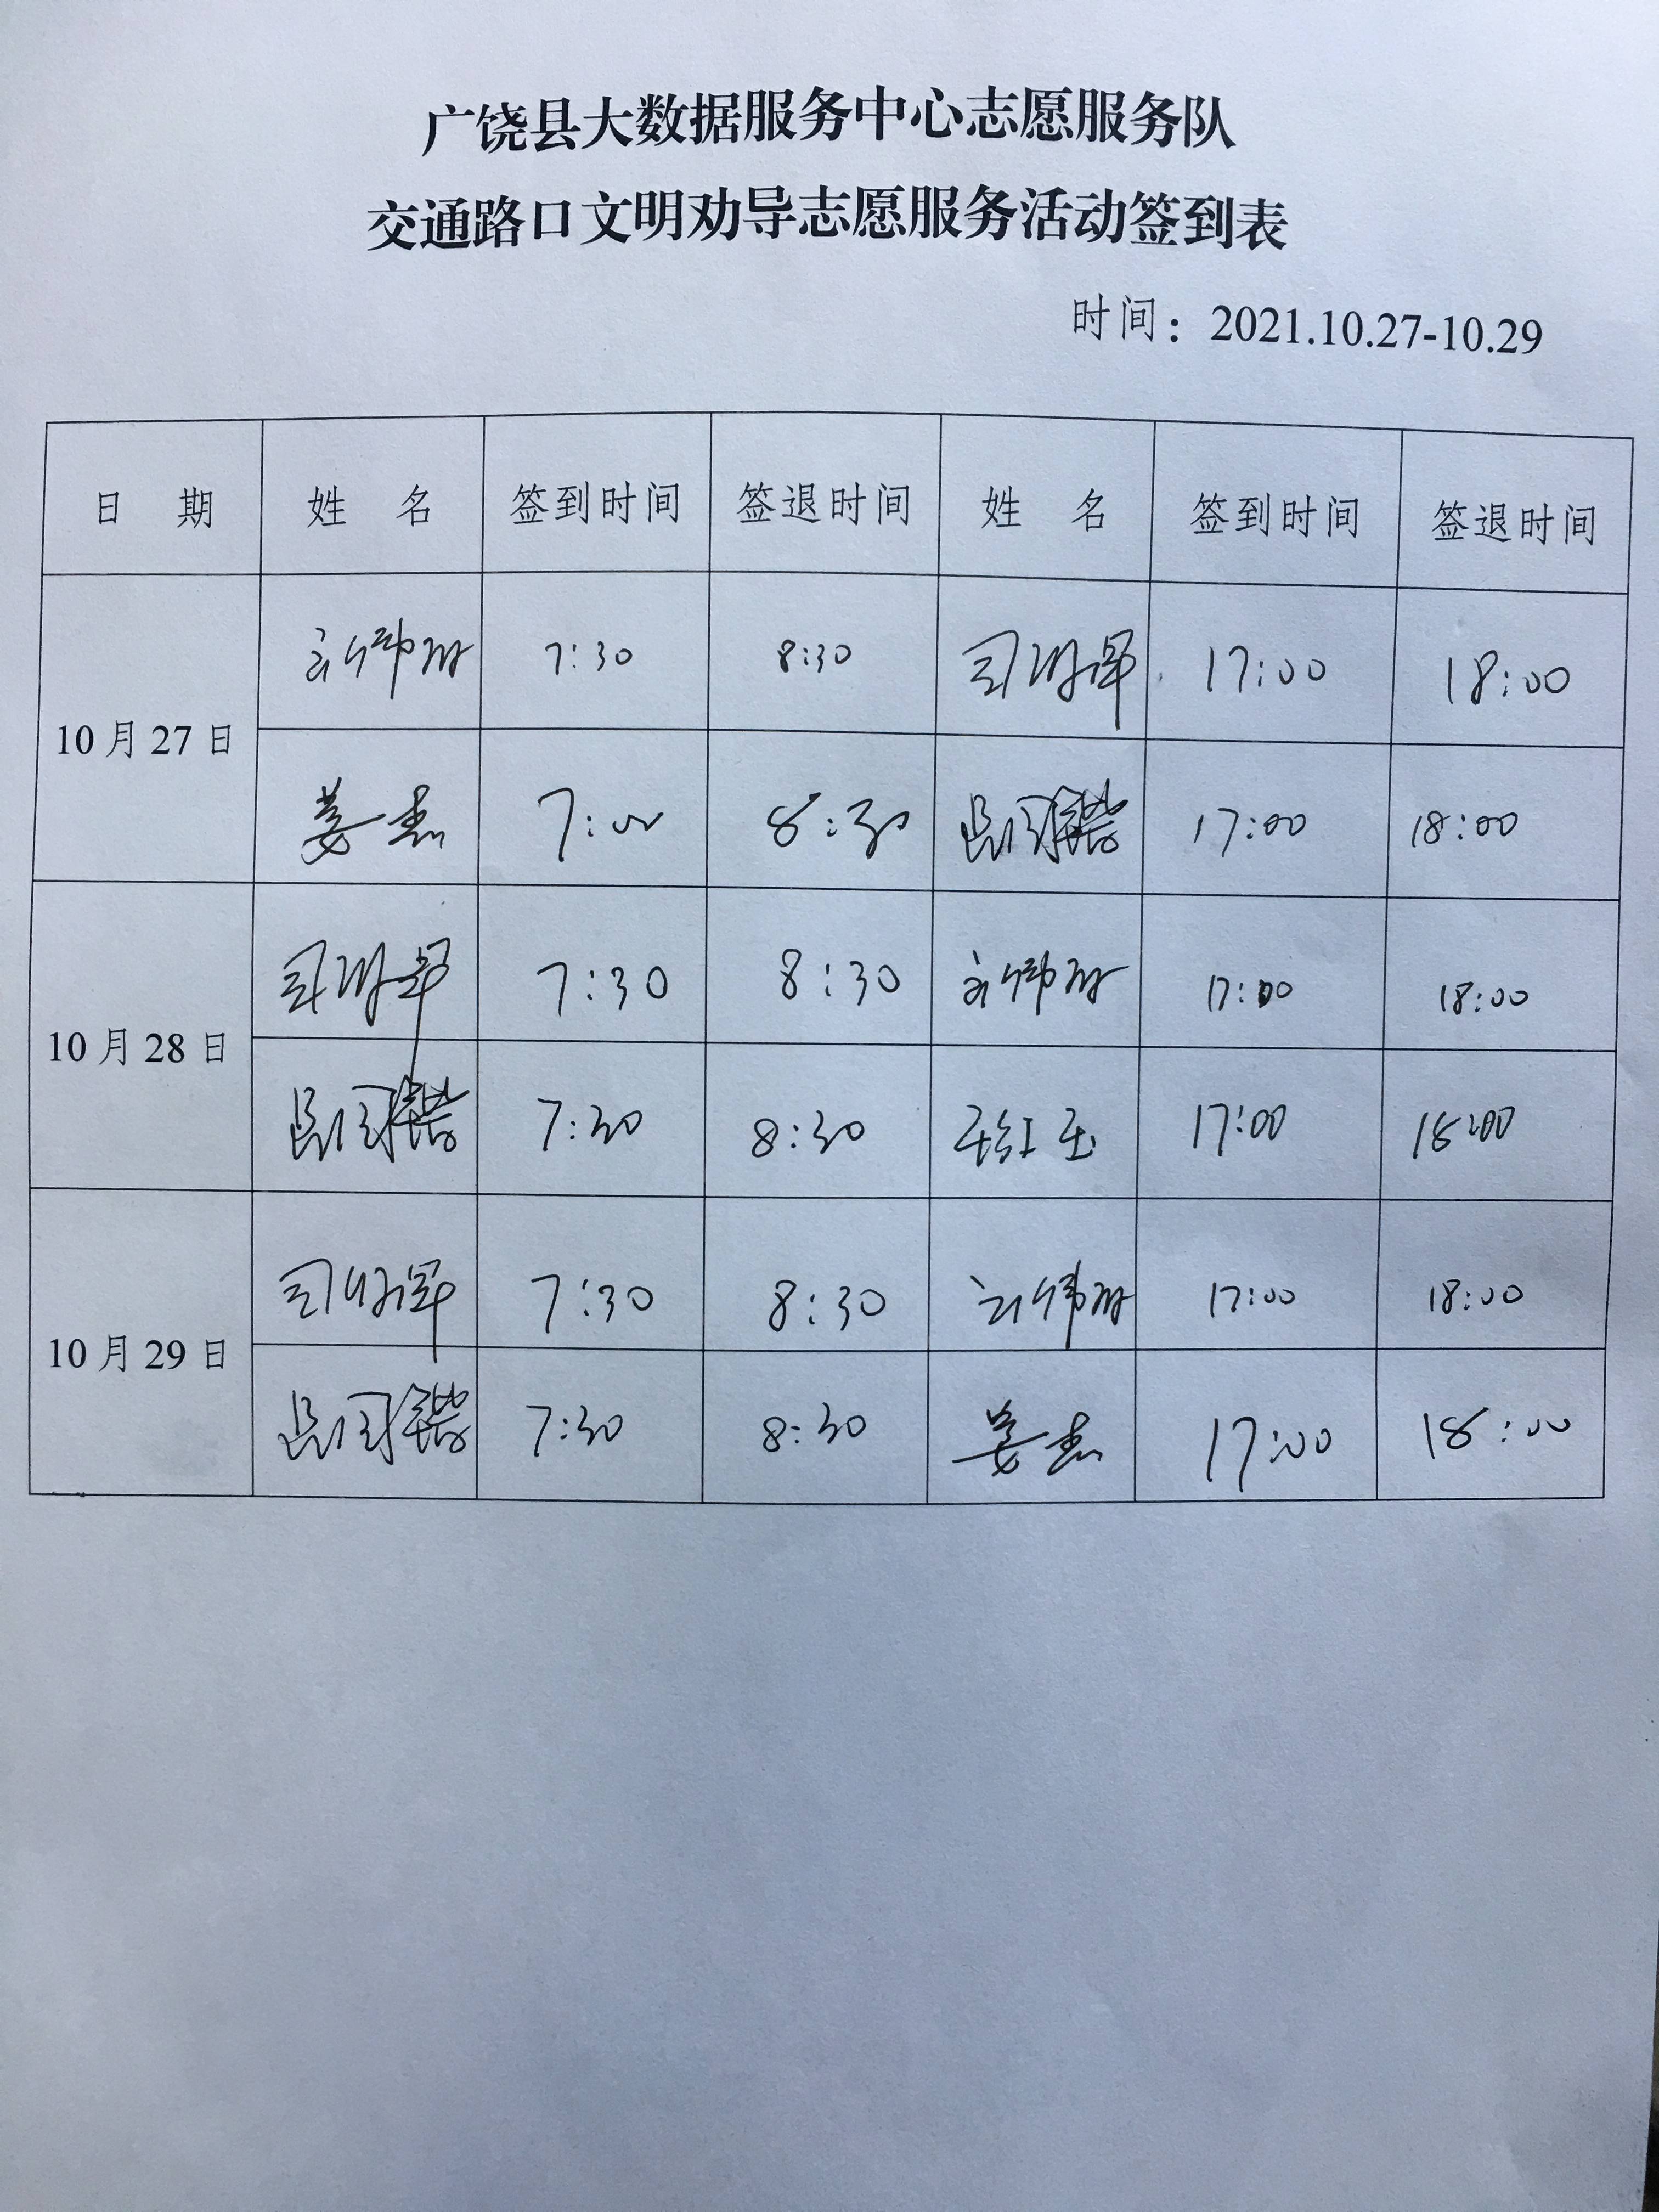 广饶县大数据服务中心志愿服务队
交通路口文明劝导志愿服务活动签到表
时间：2021.10.27-10.29
日 期 姓 名 签到时间 签退时间 姓 名 签到时间 签退时间
10月27日
7:30 8:30 17:00 18:00
姜杰 7:00 8:30 17:00 18:00
10月28日
7:30 8:30 17:00 18:00
7:30 8:30 17:00 18:00
10月29日
7:30 8:30 17:00 18:00
7:30 8:30 姜杰 17:00 18:00